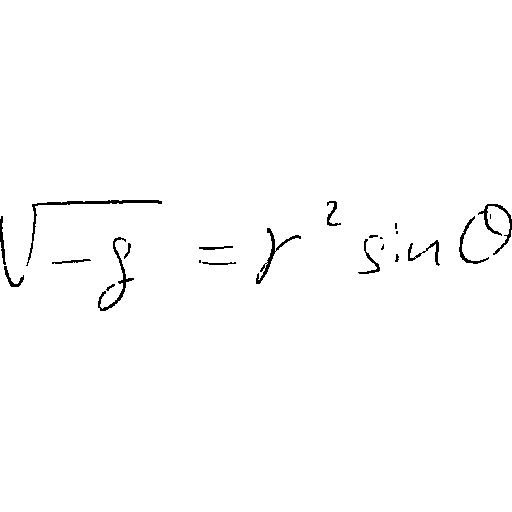 √(-g) = r² sin θ